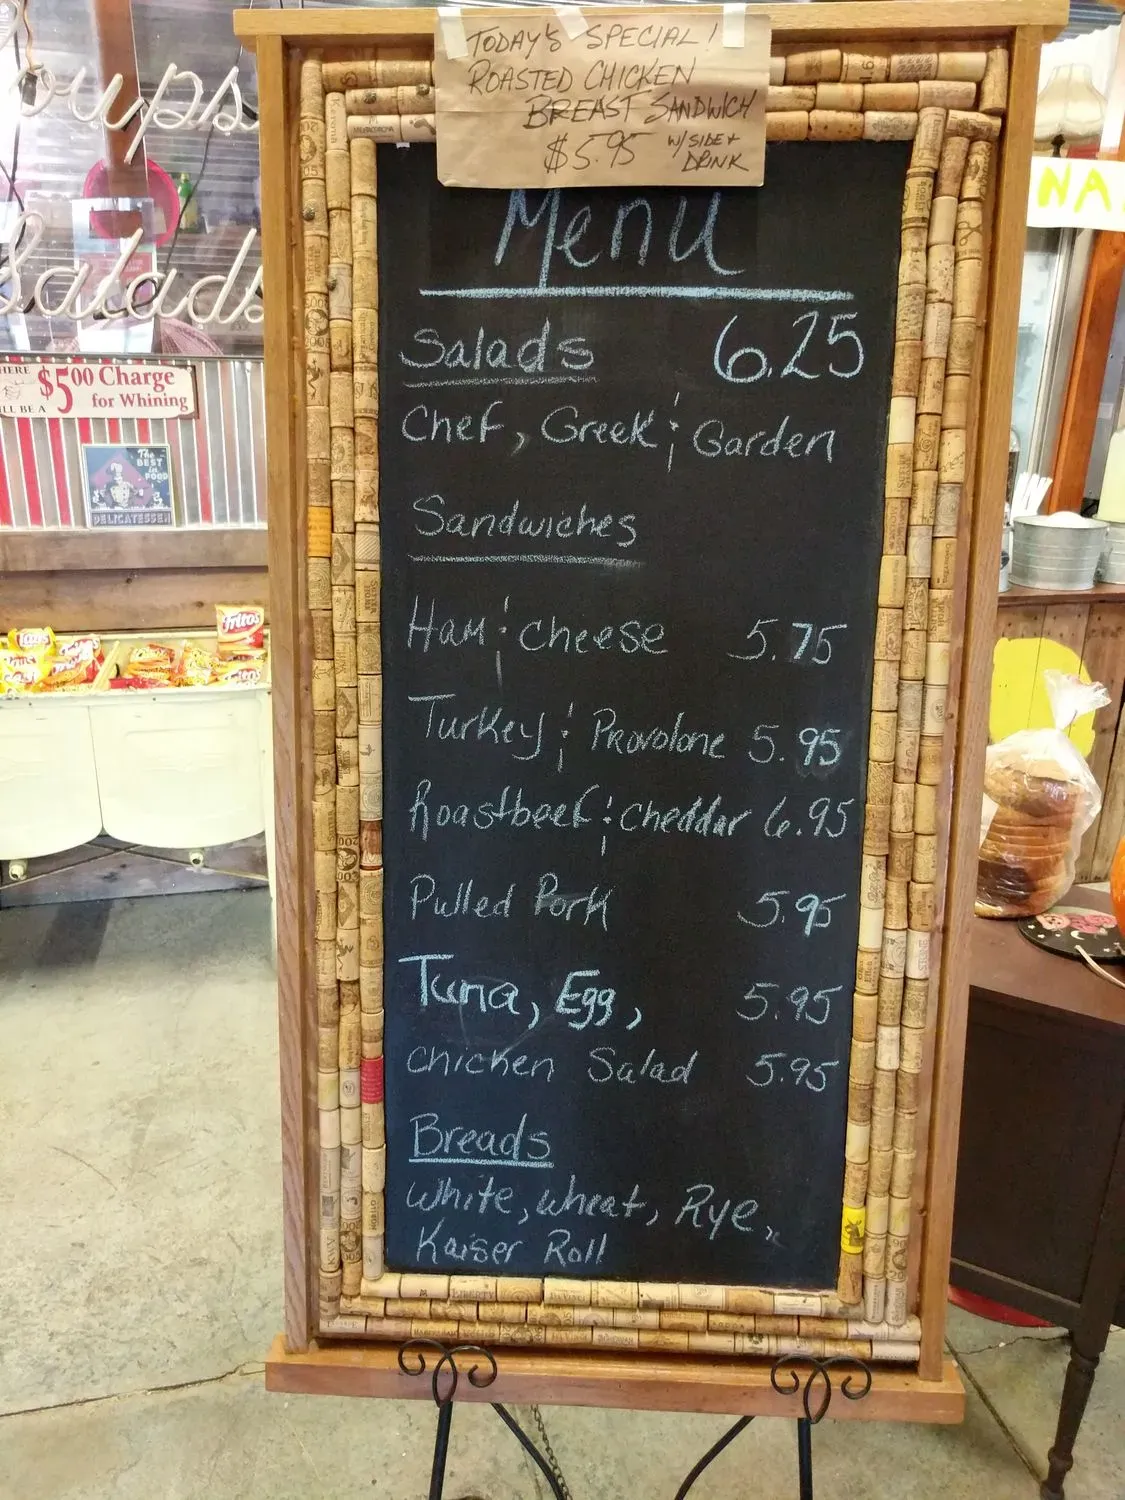 TODAY'S SPECIAL!
ROASTED CHICKEN
BREAST SANDWICH
$5.95 W/ SIDE +
DRINK
Menu
Salads 6.25
Chef, Greek & Garden
Sandwiches
Ham & cheese 5.75
Turkey & Provolone 5.95
Roastbeef & cheddar 6.95
Pulled Pork 5.95
Tuna, Egg, 5.95
chicken Salad 5.95
Breads
White, wheat, Rye,
Kaiser Roll
oups
Salads
HERE $500 Charge
LL BE A for Whining
The
BEST
in
FOOD
DELICATESSEN
Fritos
Lay's
NA
LIBERTY